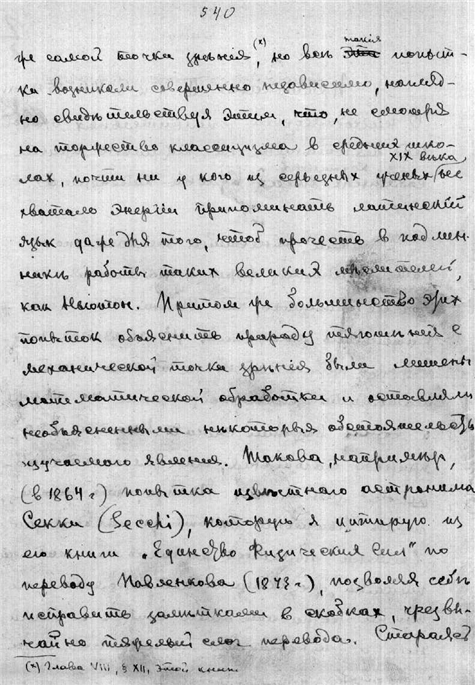 540
же самой точки зрѣнія, (x) но всѣ такія попыт-
ки возникали совершенно независимо, нагляд-
но свидѣтельствуя этимъ, что, не смотря
на торжество классицизма в средних шко-
лах, почти ни у кого из серьезных ученых XIX вѣка не
хватало энергіи припоминать латинскій
язык даже для того, чтоб прочесть в подлин-
никѣ работы таких великих мыслителей,
как Ньютон. Притом же большинство этих
попыток объяснить природу тяготѣнія с
механической точки зрѣнія были лишены
математической обработки и оставляли
необъясненными нѣкоторыя обстоятельства
изучаемого явленія. Такова, напримѣр,
(в 1864 г) попытка извѣстного астронома
Секки (Secchi), которую я цитирую из
его книги „Единство Физических Сил" по
переводу Павленкова (1873 г), позволяя себѣ
исправить замѣтками в скобках, чрезвы-
чайно тяжелый слог перевода. Стараясь
(x) Глава VIII, § XII, этой книги.